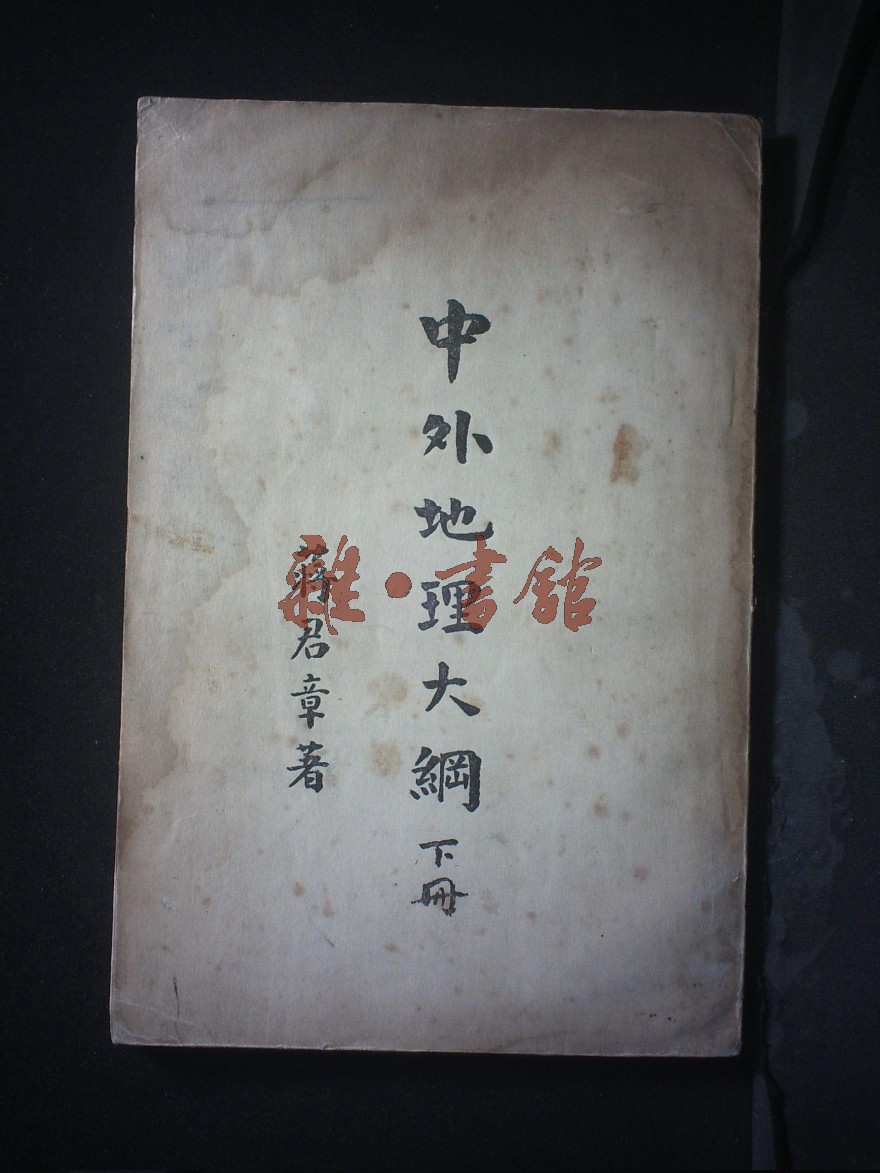 中外地理大綱 下冊
蔣君章著
雜·書館